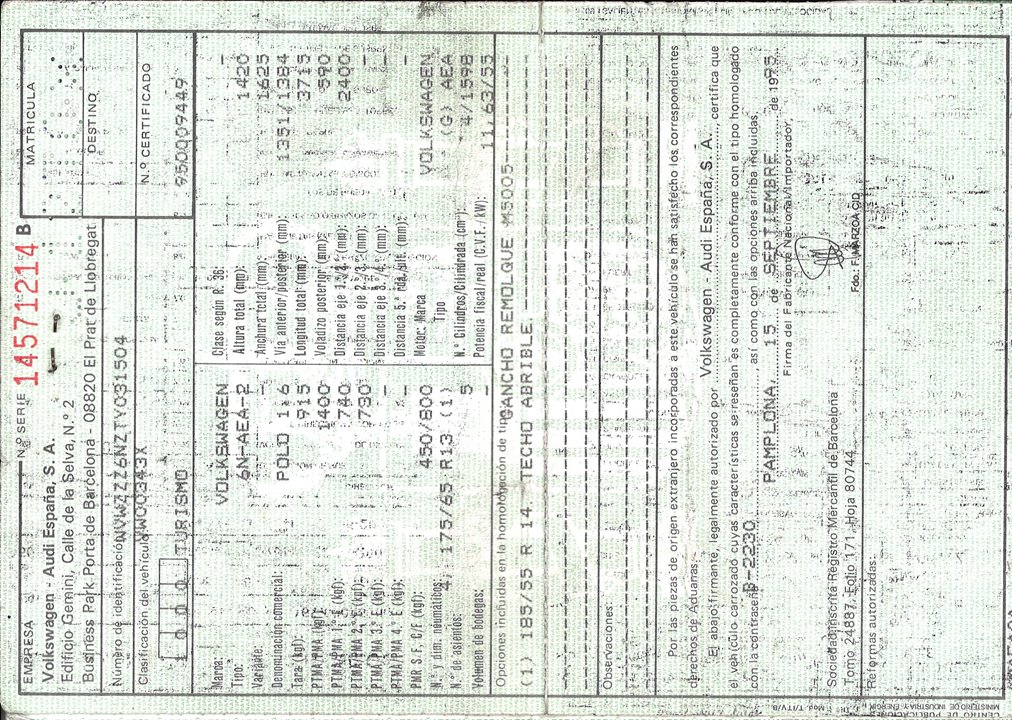 EMPRESA
Volkswagen - Audi España, S. A.
Edificio Gemini, Calle de la Selva, N.º 2
Business Park Porta de Barcelona - 08820 El Prat de Llobregat
N.º SERIE 14571214 B
MATRICULA
DESTINO
N.º CERTIFICADO
950009449
Número de identificación
Clasificación del vehículo
1 0 0 0 TURISMO
Marca: VOLKSWAGEN
Tipo: 6N-AEA-2
Variante: -
Denominación comercial: POLO 116
Tara (kg): 915
PTMA/PMA (kg): 1400
PTMA/PMA 1.º E (kgf): 740
PTMA/PMA 2.º E (kgf): 730
PTMA/PMA 3.º E (kgf): -
PTMA/PMA 4.º E (kgf): -
PMR S.F. C/F (kgf): 450/800
N.º y dim. neumáticos: 4 175/65 R13 (1)
N.º de asientos: 5
Volumen de bodegas: -
Clase según R. 36: -
Altura total (mm): 1420
Anchura total (mm): 1625
Vía anterior/posterior (mm): 1351/1384
Longitud total (mm): 3715
Voladizo posterior (mm): 590
Distancia eje 1.º/2.º (mm): 2400
Distancia eje 2.º/3.º (mm): -
Distancia eje 3.º/4.º (mm): -
Distancia 5.ª Rda./últ. (mm): -
Motor: Marca VOLKSWAGEN
Tipo (G) AEA
N.º Cilindros/Cilindrada (cm³): 4/1598
Potencia fiscal/real (C.V.F./kW): 11,63/55
Opciones incluidas en la homologación de tipo: GANCHO REMOLQUE M5005
(1) 185/55 R 14. TECHO ABRIBLE.
Observaciones:
Por las piezas de origen extranjero incorporadas a este vehículo se han satisfecho los correspondientes
derechos de Aduanas.
El abajo firmante, legalmente autorizado por Volkswagen - Audi España, S. A., certifica que
el vehículo carrozado cuyas características se reseñan es completamente conforme con el tipo homologado
con la contraseña B-2230, así como con las opciones arriba incluidas.
PAMPLONA, 15 de SEPTIEMBRE de 1995
Firma del Fabricante Nacional/Importador,
Fdo.: F. MARZOA CID
Sociedad inscrita Registro Mercantil de Barcelona
Tomo 24887, Folio 171, Hoja 80744
Reformas autorizadas:
MINISTERIO DE INDUSTRIA Y ENERGIA
CENTRO DE PUBLICACIONES
Mod. T/ITV/B